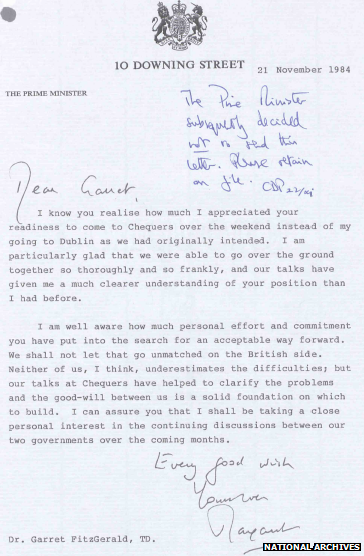 10 DOWNING STREET
21 November 1984
THE PRIME MINISTER
The Prime Minister
subsequently decided
not to send this
letter. Please retain
on file.
Dear Garret,
I know you realise how much I appreciated your
readiness to come to Chequers over the weekend instead of my
going to Dublin as we had originally intended. I am
particularly glad that we were able to go over the ground
together so thoroughly and so frankly, and our talks have
given me a much clearer understanding of your position than
I had before.
I am well aware how much personal effort and commitment
you have put into the search for an acceptable way forward.
We shall not let that go unmatched on the British side.
Neither of us, I think, underestimates the difficulties; but
our talks at Chequers have helped to clarify the problems
and the good-will between us is a solid foundation on which
to build. I can assure you that I shall be taking a close
personal interest in the continuing discussions between our
two governments over the coming months.
Every good wish
Yours ever
Margaret
Dr. Garret FitzGerald, TD.
NATIONAL ARCHIVES